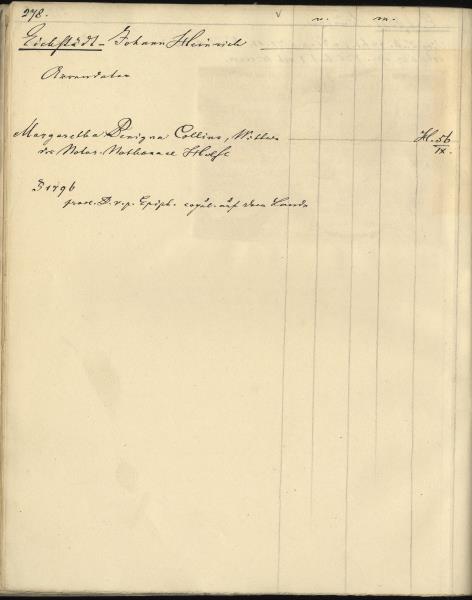 278. v. m.
Eichstädt - Johann Heinrich
Arrendator
Margaretha Benigna Collins, Wittwe H. 56
des Notar. Nathanael IX.
1796
proc. D. v. p. Epiph. copul. auf dem Lande